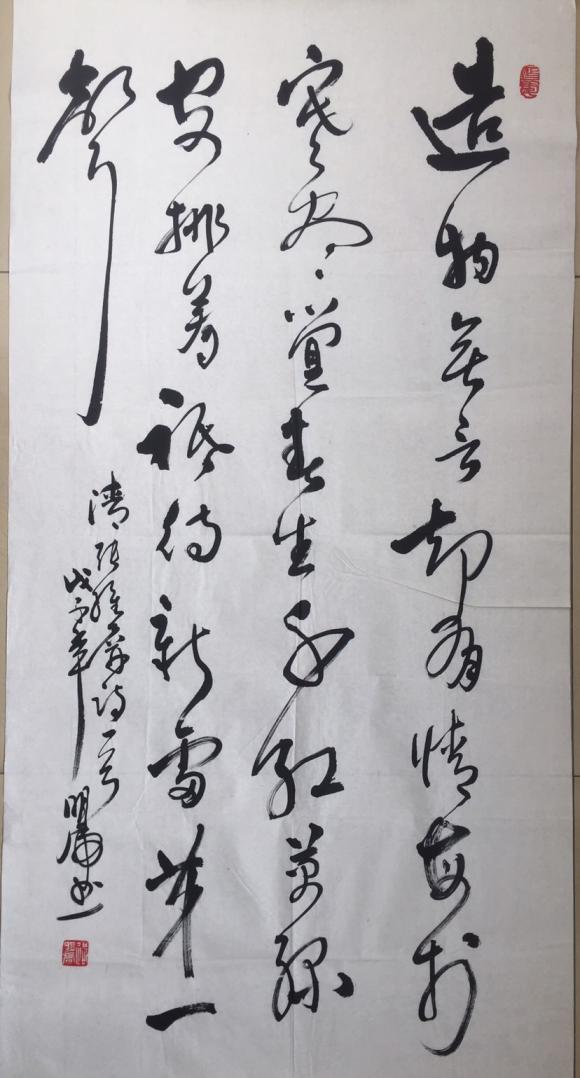 造物無言却有情每於
寒尽覺春生千紅萬紫
安排着祗待新雷第一
聲
清張維屏詩一首
戊子年 明庸书